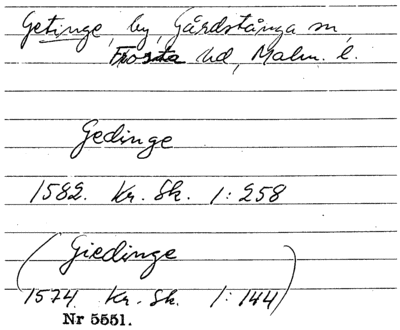 Getinge, by, Gårdstånga sn,
Frosta hd, Malm. l.
Gedinge
1582. Kr. Sk. 1:258
(Giedinge
1574. Kr. Sk. 1:144)
Nr 5551.